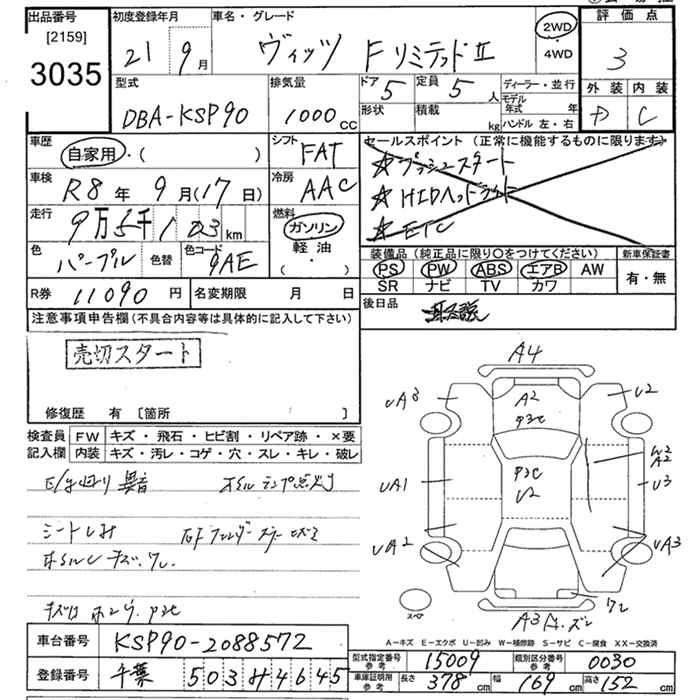 出品番号 初度登録年月 車名・グレード 2WD ・ 4WD 評価点
[2159]
3035
21 9月 ヴィッツ FリミテッドⅡ 3
型式 排気量 ドア 5 定員 5人 ディーラー・並行 外装 内装
DBA-KSP90 1000cc 形状 積載 kg モデル年式 年 C
ハンドル 左・右
車歴 自家用・( ) シフト FAT セールスポイント (正常に機能するものに限ります)
☆プッシュスタート
車検 R8年 9月(17日) 冷房 AAC ☆HIDヘッドライト
☆ETC
走行 9万5千123km 燃料 ガソリン 軽油 ( ・ )
色 パープル 色替 色コード 9AE
装備品 (純正品に限り〇をつけてください) 新車保証書
PS PW ABS エアB AW 有・無
SR ナビ TV カワ
R券 11090円 名変期限 月 日 後日品
注意事項申告欄 (不具合内容等は具体的に記入して下さい)
売切スタート
修復歴 有 [箇所 ]
検査員記入欄 FW キズ・飛石・ヒビ割・リペア跡・×要
内装 キズ・汚レ・コゲ・穴・スレ・キレ・破レ
異音 オイルランプ点灯
A4
UA3 A2 U2
P3C
P3C
UA1 U2 W2 A2 U3
UA2 UA3
ワレ
スペア
A3
A-キズ E-エクボ U-凹み W-補修跡 S-サビ C-腐食 XX-交換済
車台番号 KSP90-2088572
登録番号 千葉 503 4645
型式指定番号 参考 15009 類別区分番号 参考 0030
車庫証明用 参考 長さ 378cm 幅 169cm 高さ 152cm